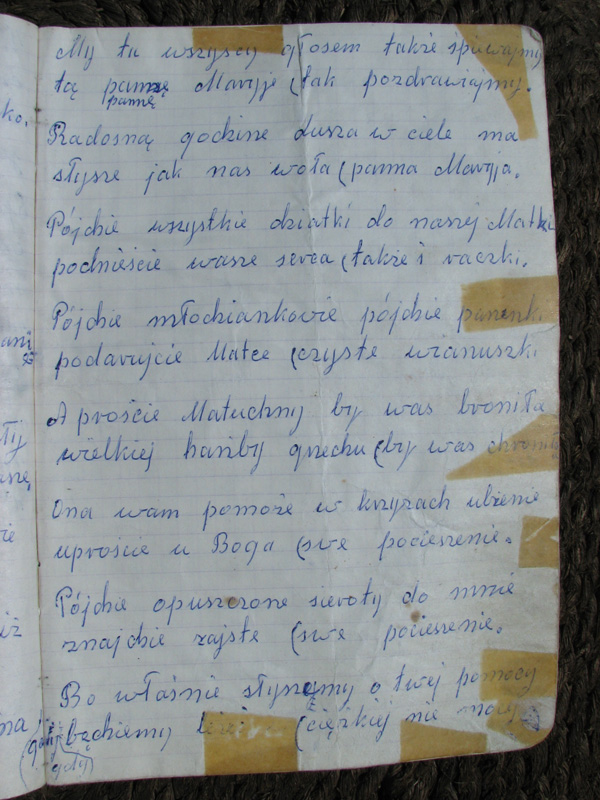 My tu wszyscy głosem także śpiewajmy
tą pannę Maryje (tak pozdrawiajmy.
pannę
Radosną godzine dusza w ciele ma
słysze jak nas woła (panna Maryja.
Pójdzie wszystkie dziatki do naszej Matki
podnieście wasze serca (także i raczki.
Pójdzie młodziankowie pójdzie panienk
podarujcie Matce (czyste wianuszki
A proście Matuchny by was broniła
wielkiej hańby grzechu (by was chroniła
Ona wam pomoże w krzyżach ulżenie
uproście u Boga (swe pocieszenie.
Pójdzie opuszczone sieroty do mnie
znajdzie zajste (swe pocieszenie.
Bo właśnie słyszymy o twej pomocy
będziemy (ciężkiej nie mocy
(gdy)
ko.
ani
ły
ie
iż
na